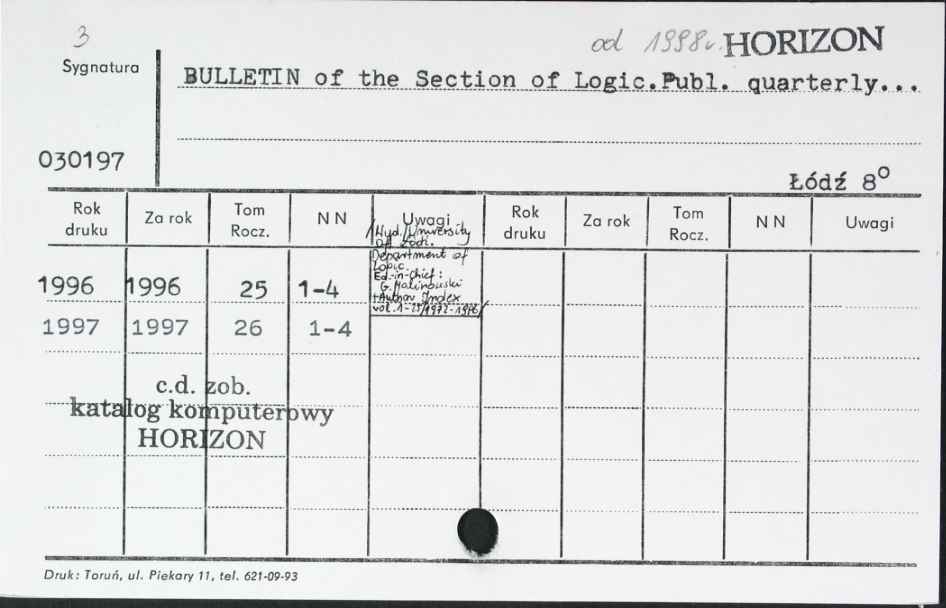 3
od 1998r. HORIZON
Sygnatura
BULLETIN of the Section of Logic.Publ. quarterly...
030197
Łódź 8°
Rok druku Za rok Tom Rocz. N N Uwagi Rok druku Za rok Tom Rocz. N N Uwagi
/Wyd./University
Of Łódź.
Department of
Logic.
Ed.-in-chief:
G. Malinowski
+Author Index
vol. 1-25/1972-1996/
1996 1996 25 1-4
1997 1997 26 1-4
c.d. zob.
katalog komputerowy
HORIZON
Druk: Toruń, ul. Piekary 11, tel. 621-09-93